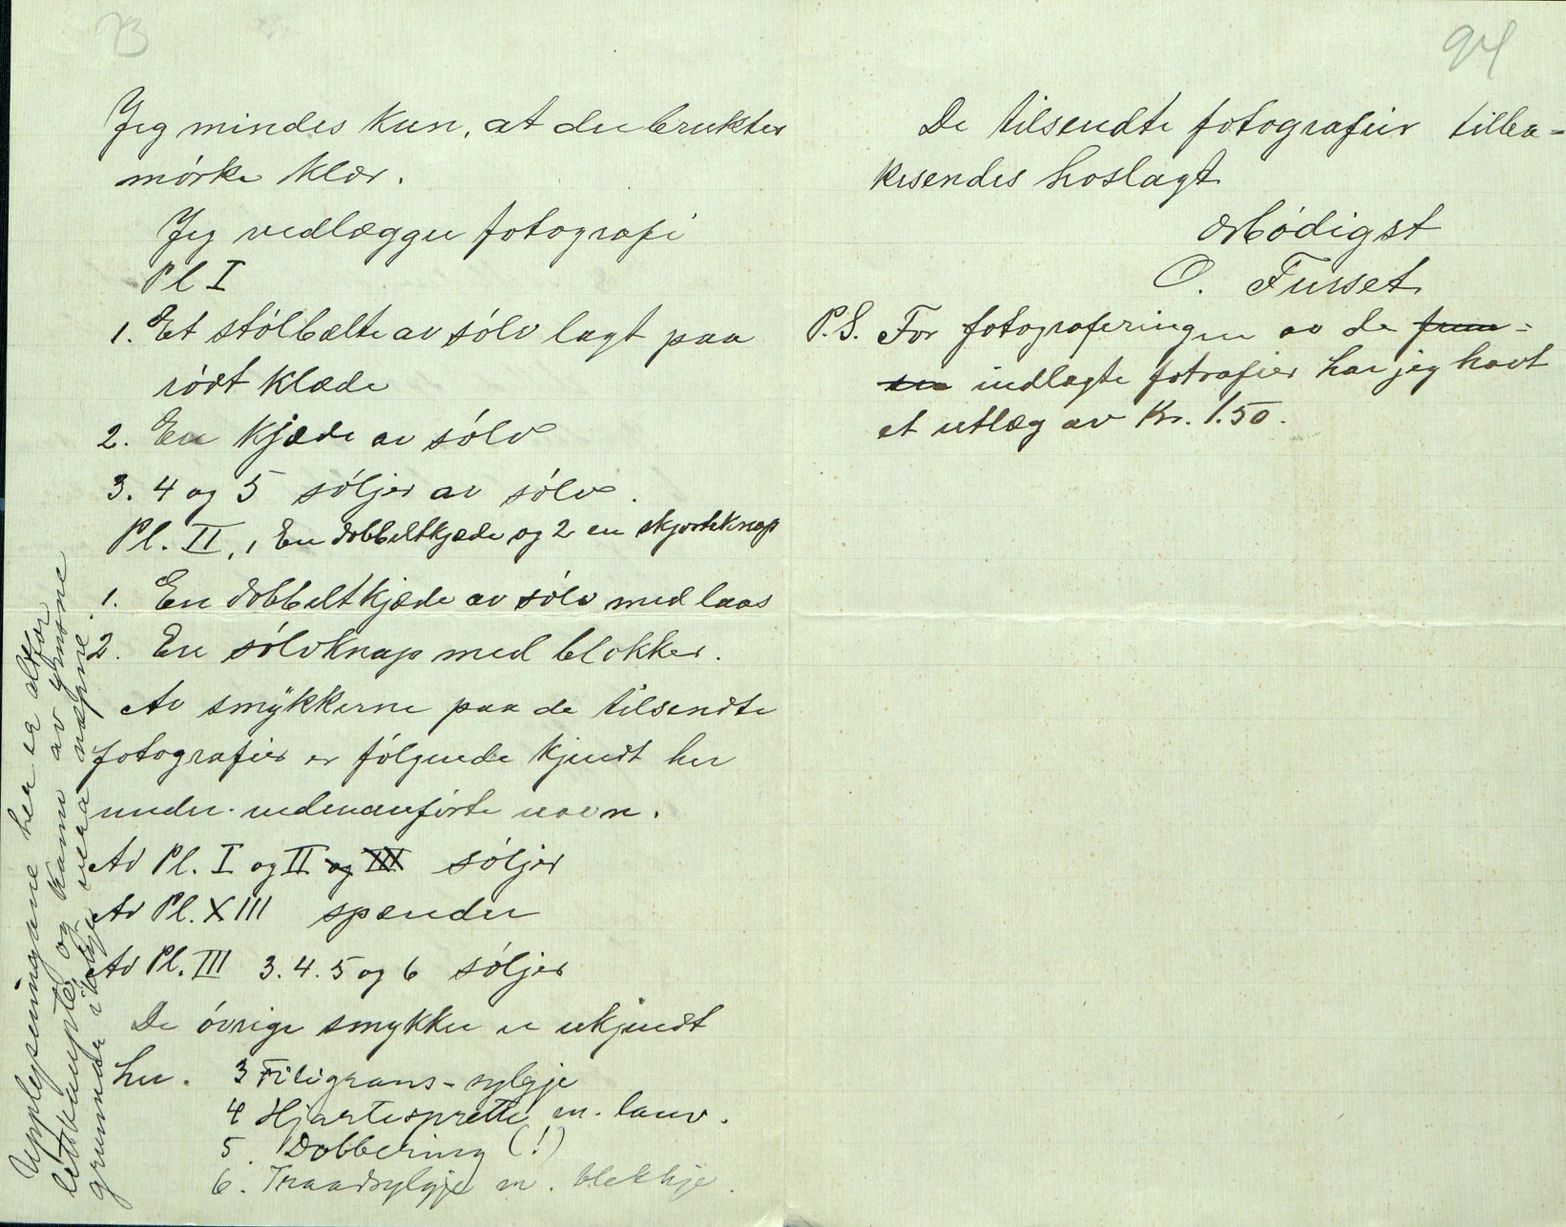 73
Jeg mindes kun, at de bruktes
mörke klær.
Jeg vedlægger fotografi
Pl I
1. Et stölbælte av sölv lagt paa
rödt klæde
2. En kjæde av sölv
3. 4 og 5 söljer av sölv.
Pl. II, 1 En dobbeltkjæde og 2 en skjorteknap
1. En dobbeltkjæde av sölv med laas
2. En sölvknap med blokker.
Av smykkerne paa de tilsendte
fotografier er fölgende kjendt her
under nedenanförte navn.
Av Pl. I og II og III söljer
Av Pl. XIII spænder
Av Pl. III 3. 4. 5 og 6 söljer
De övrige smykker er ukjendt
her. 3 Filigrans-sylgje
4 Hjartesprette m. lauv.
5. Dobbering (!)
6. Traadsylgje m. blekkje.
Upplysningane her er altfor
lettkaupte, og kann av ymsne
grunnar ikkje vera
94
De tilsendte fotografier tilba-
kesendes hoslagt
Ærbödigst
O. Fusset
P.S. For fotograferingen av de frem-
sen indlagte fotrafier har jeg havt
et utlæg av Kr. 1.50.